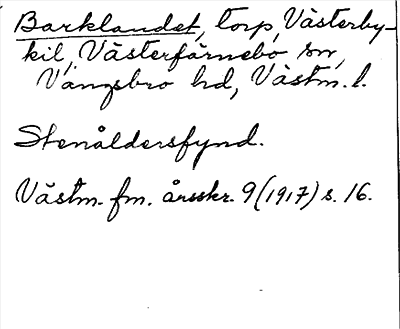 Barklandet, torp, Västerby-
kil, Västerfärnebo sn,
Vangsbro hd, Västm. l.
Stenåldersfynd.
Västm. fm. årsskr. 9 (1917) s. 16.